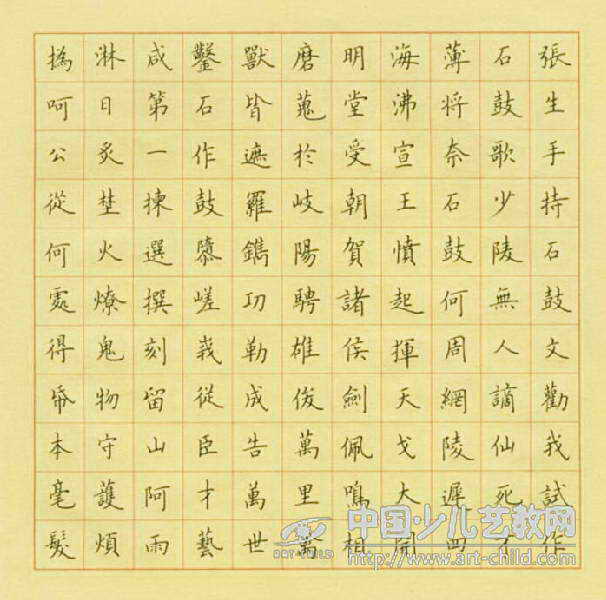 張生手持石鼓文勸我試作
石鼓歌少陵無人謫仙死才
薄將奈石鼓何周網陵遲四
海沸宣王憤起揮天戈大開
明堂受朝賀諸侯劍佩鳴相
磨蒐於岐陽騁雄俊萬里禽
獸皆遮羅鐫功勒成告萬世
鑿石作鼓隳嵯峩從臣才藝
咸第一揀選撰刻留山阿雨
淋日炙埜火燎鬼物守護煩
撝呵公從何處得帋本毫髮
中国少儿艺教网
ART CHILD
http://www.art-child.com